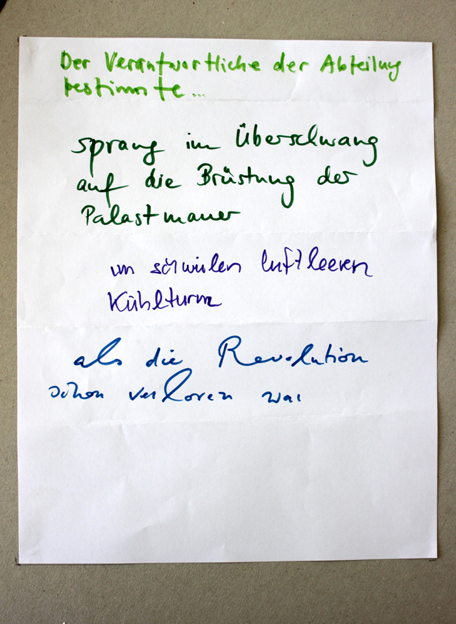 Der Verantwortliche der Abteilung
bestimmte...
sprang im Überschwang
auf die Brüstung der
Palastmauer
im schwülen luftleeren
Kühlturm
als die Revolution
schon verloren war